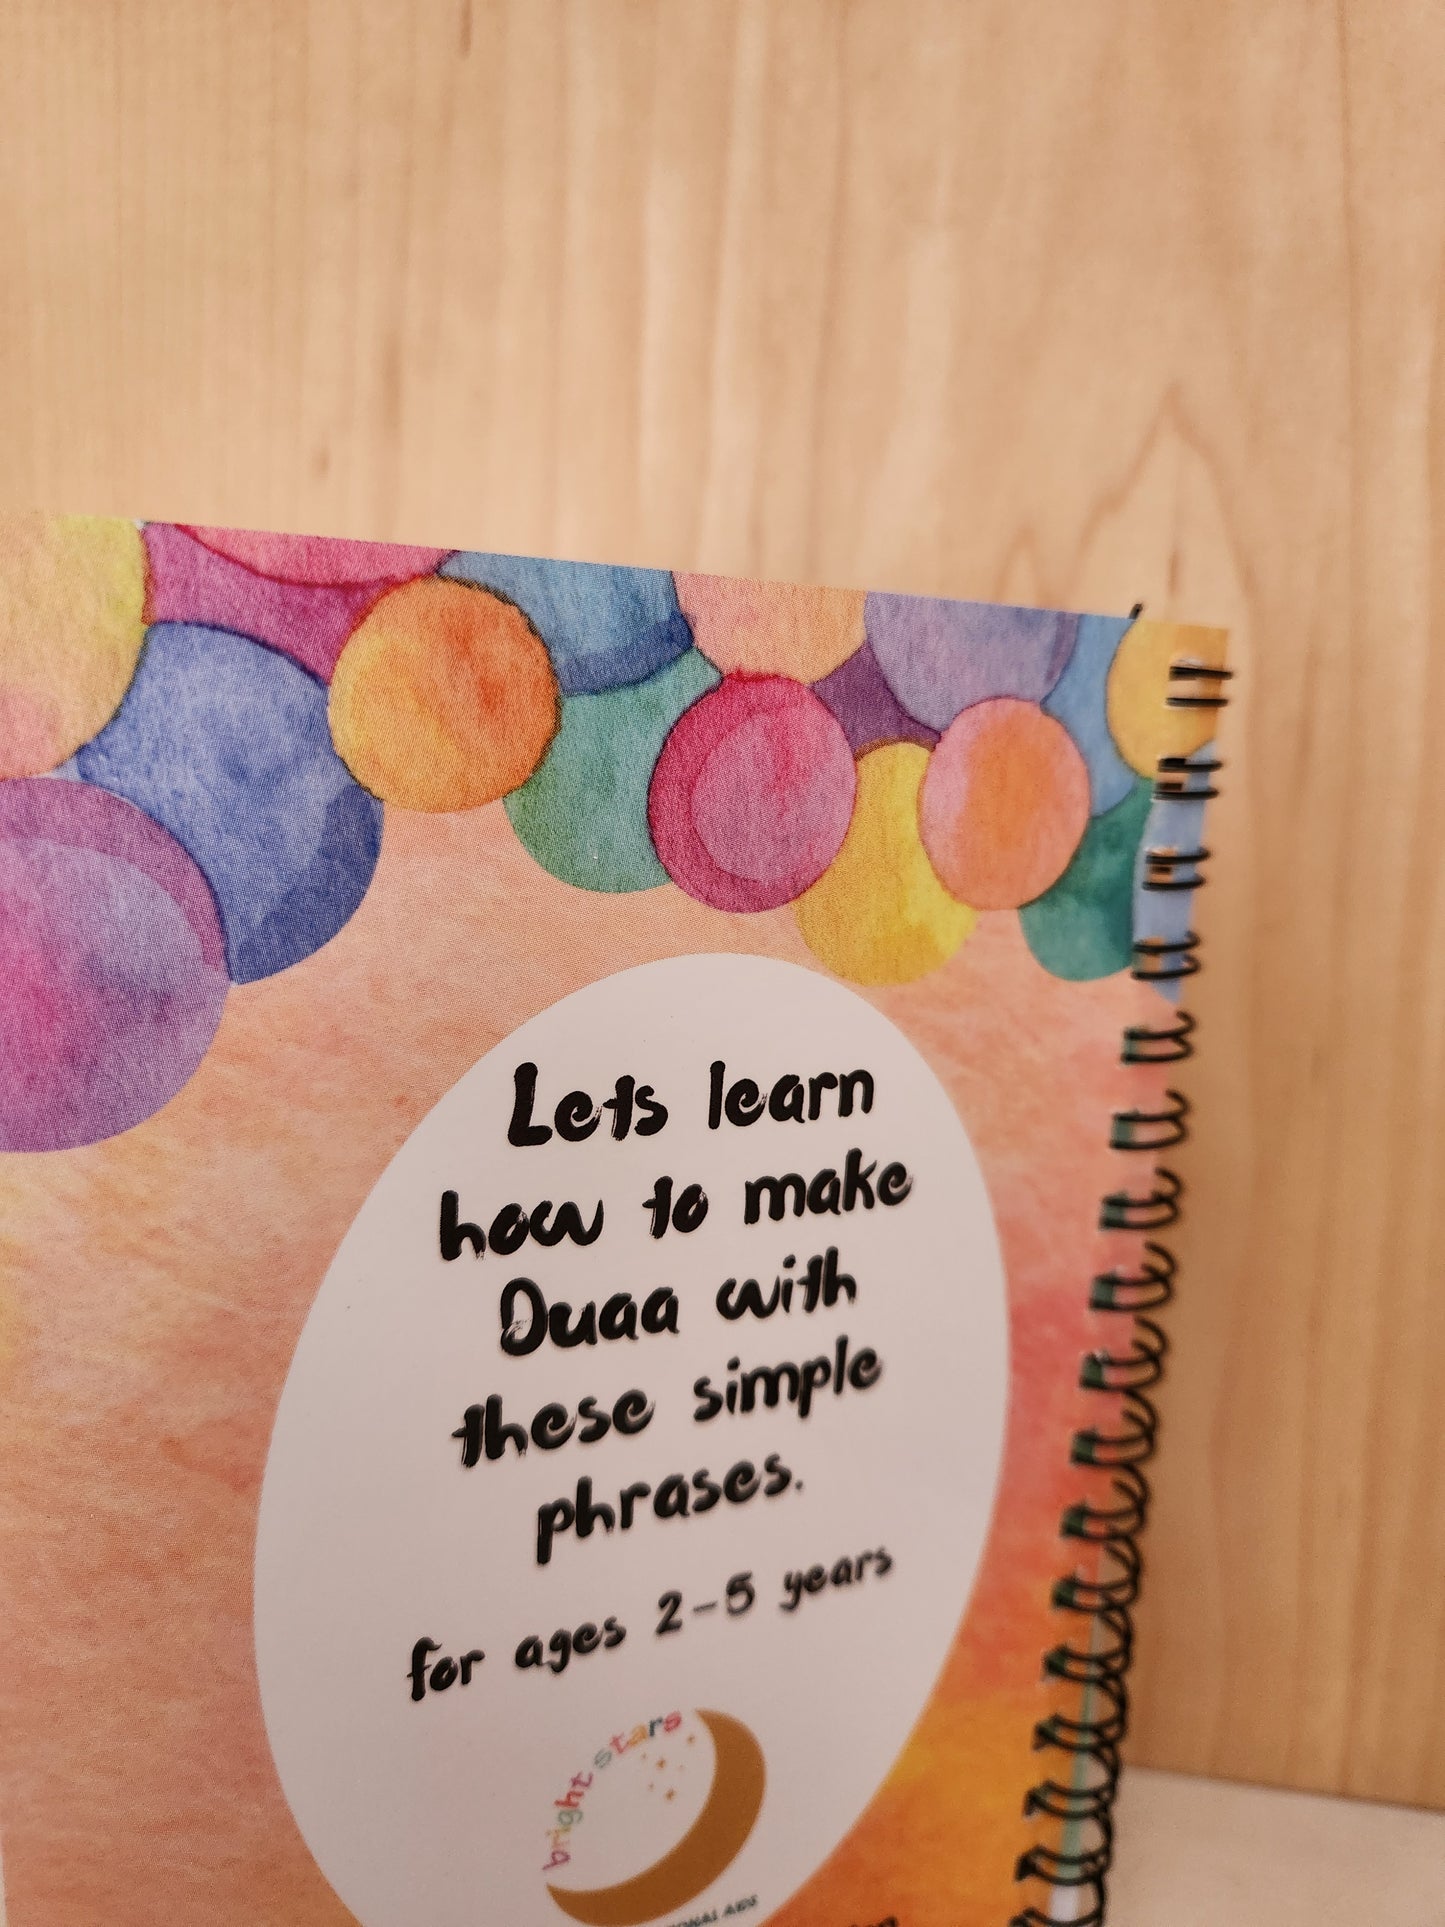 Lets learn
how to make
Duaa with
these simple
phrases.
for ages 2-5 years
bright stars
AIDS